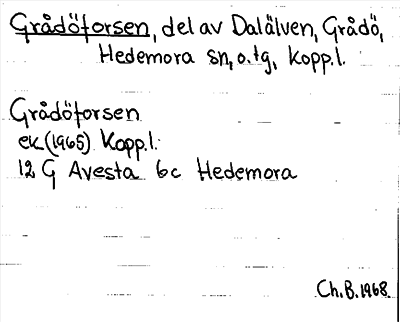 Grådöforsen, del av Dalälven, Grådö,
Hedemora sn, o. tg, Kopp.l.
Grådöforsen
ek. (1965) Kopp.l.
12 G Avesta 6c Hedemora
Ch.B. 1968.